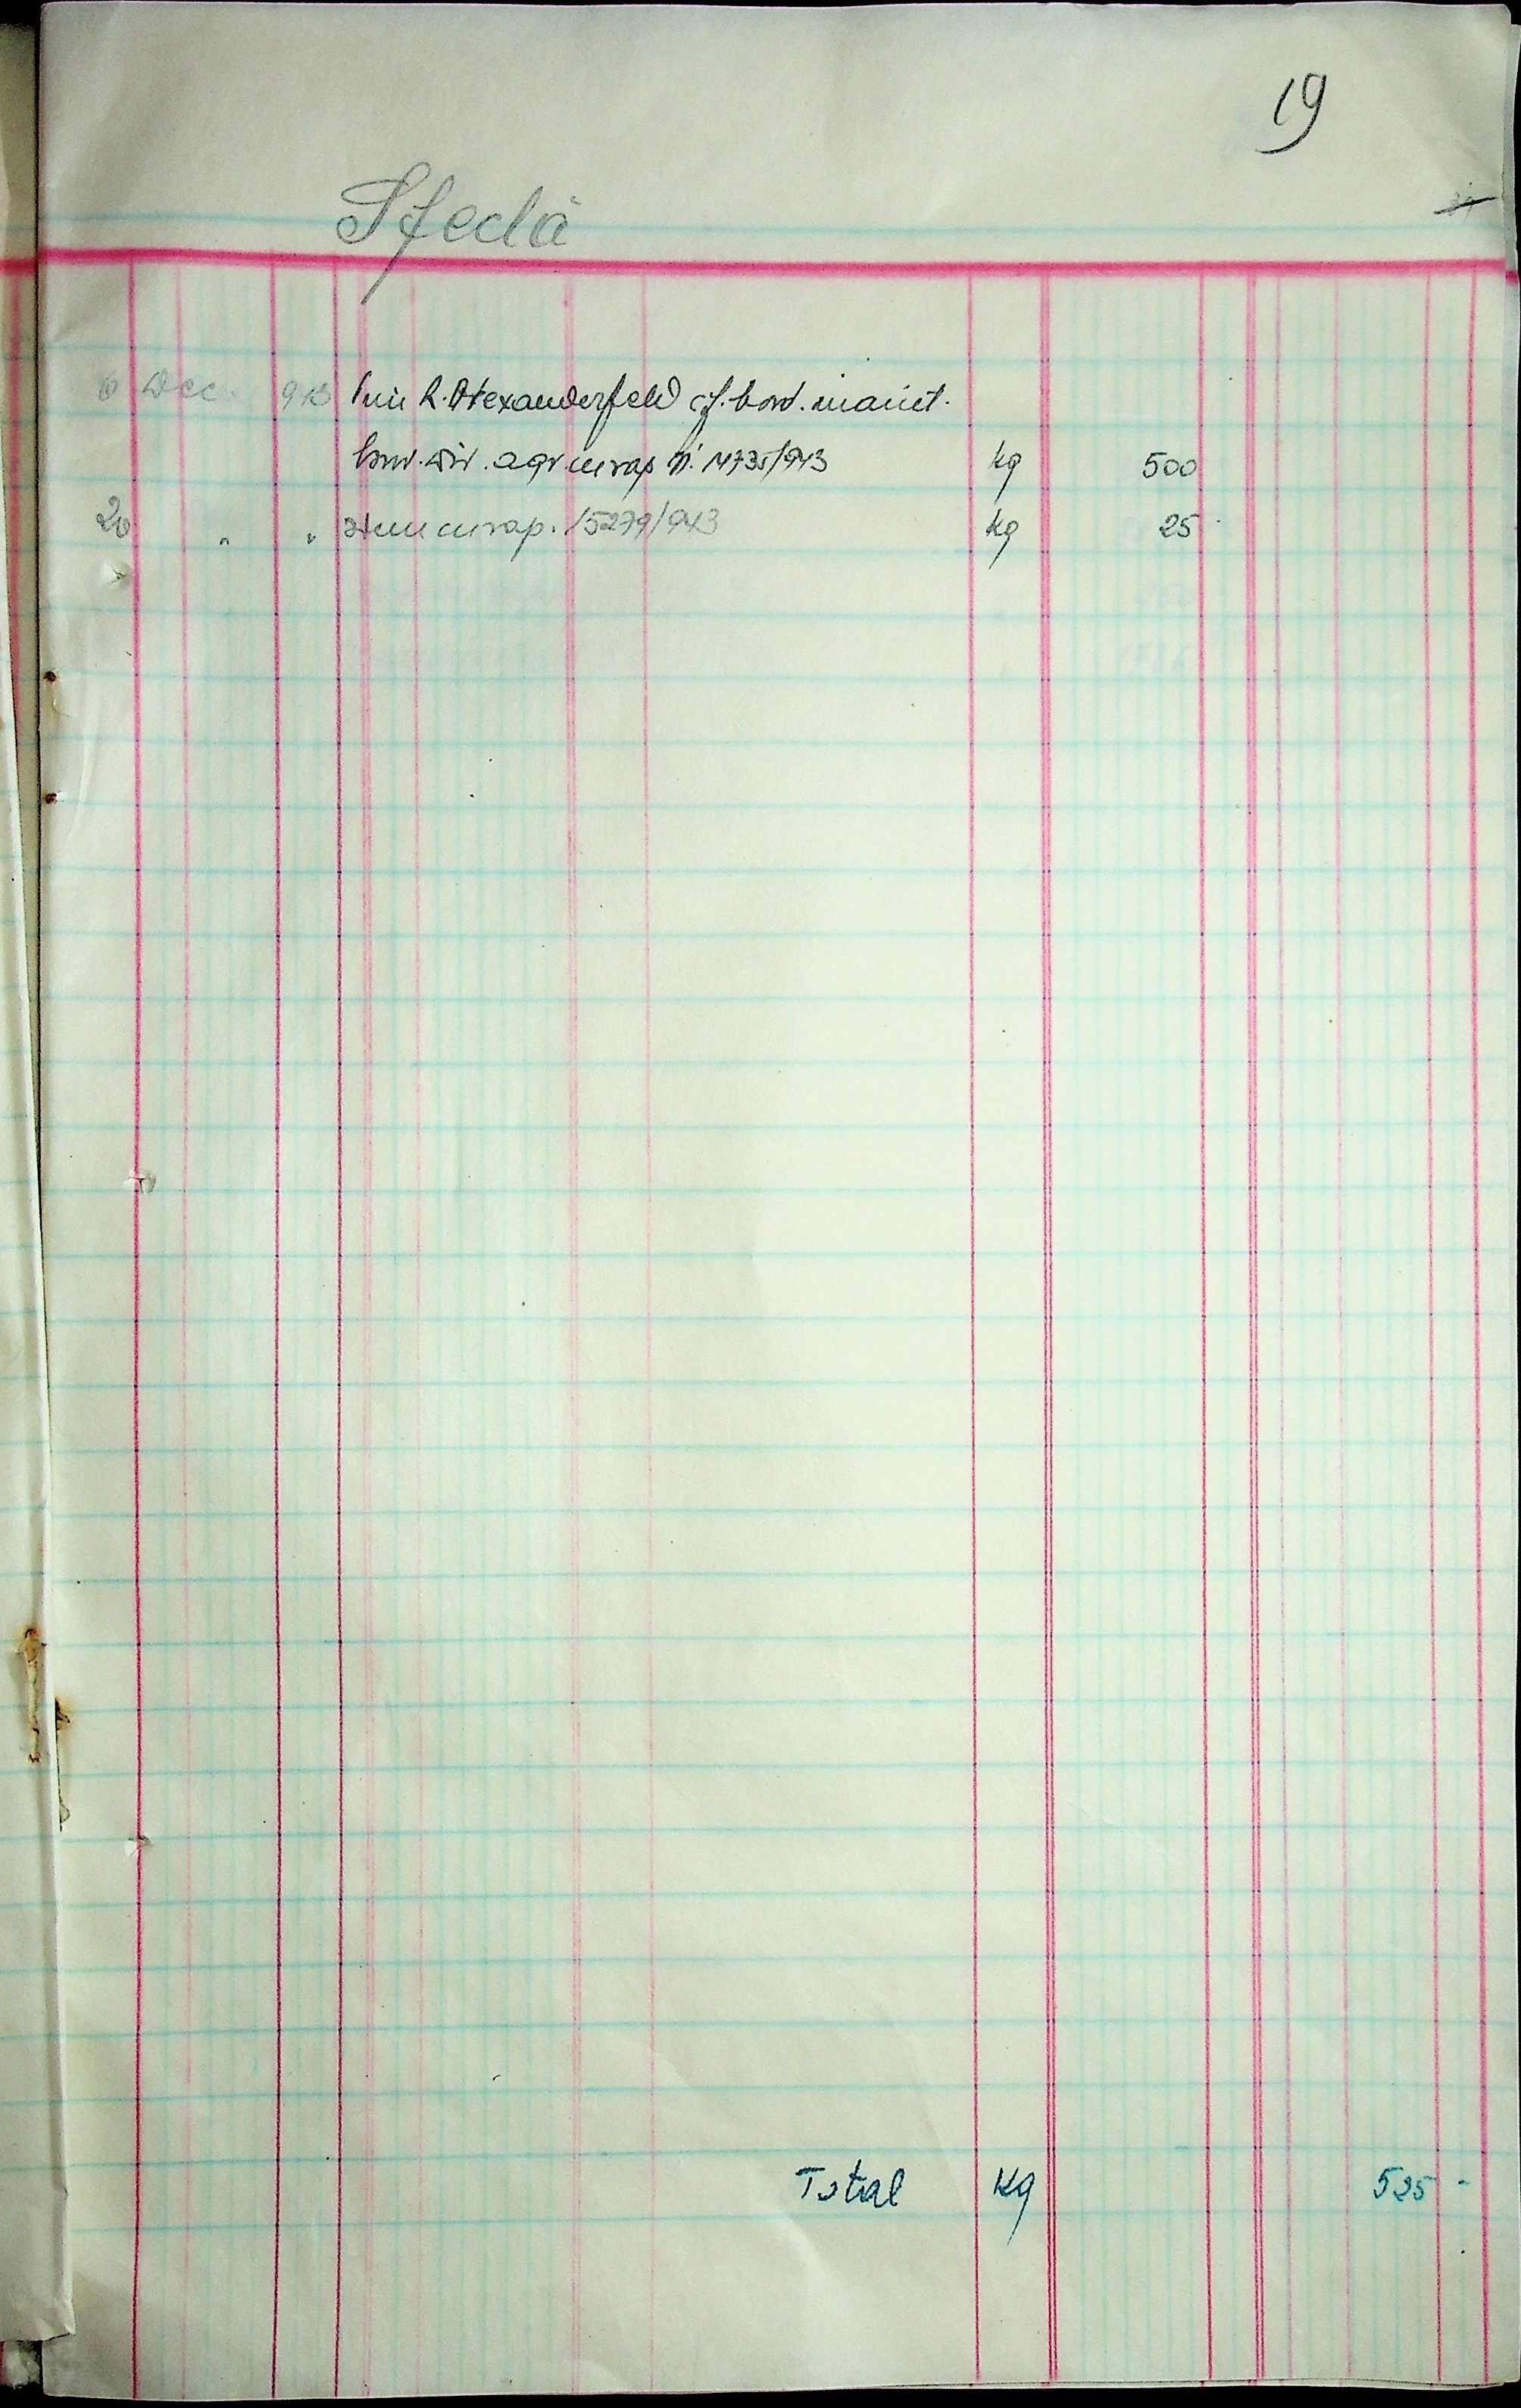 19
Sfeclă
6 Dec. 943 Prin R. Alexanderfeld cf. bord. inaint.
dir. agr. cu rap. N. 14735/943 kg 500
20 " " Idem cu rap. 15279/943 kg 25
Total Kg 525 -